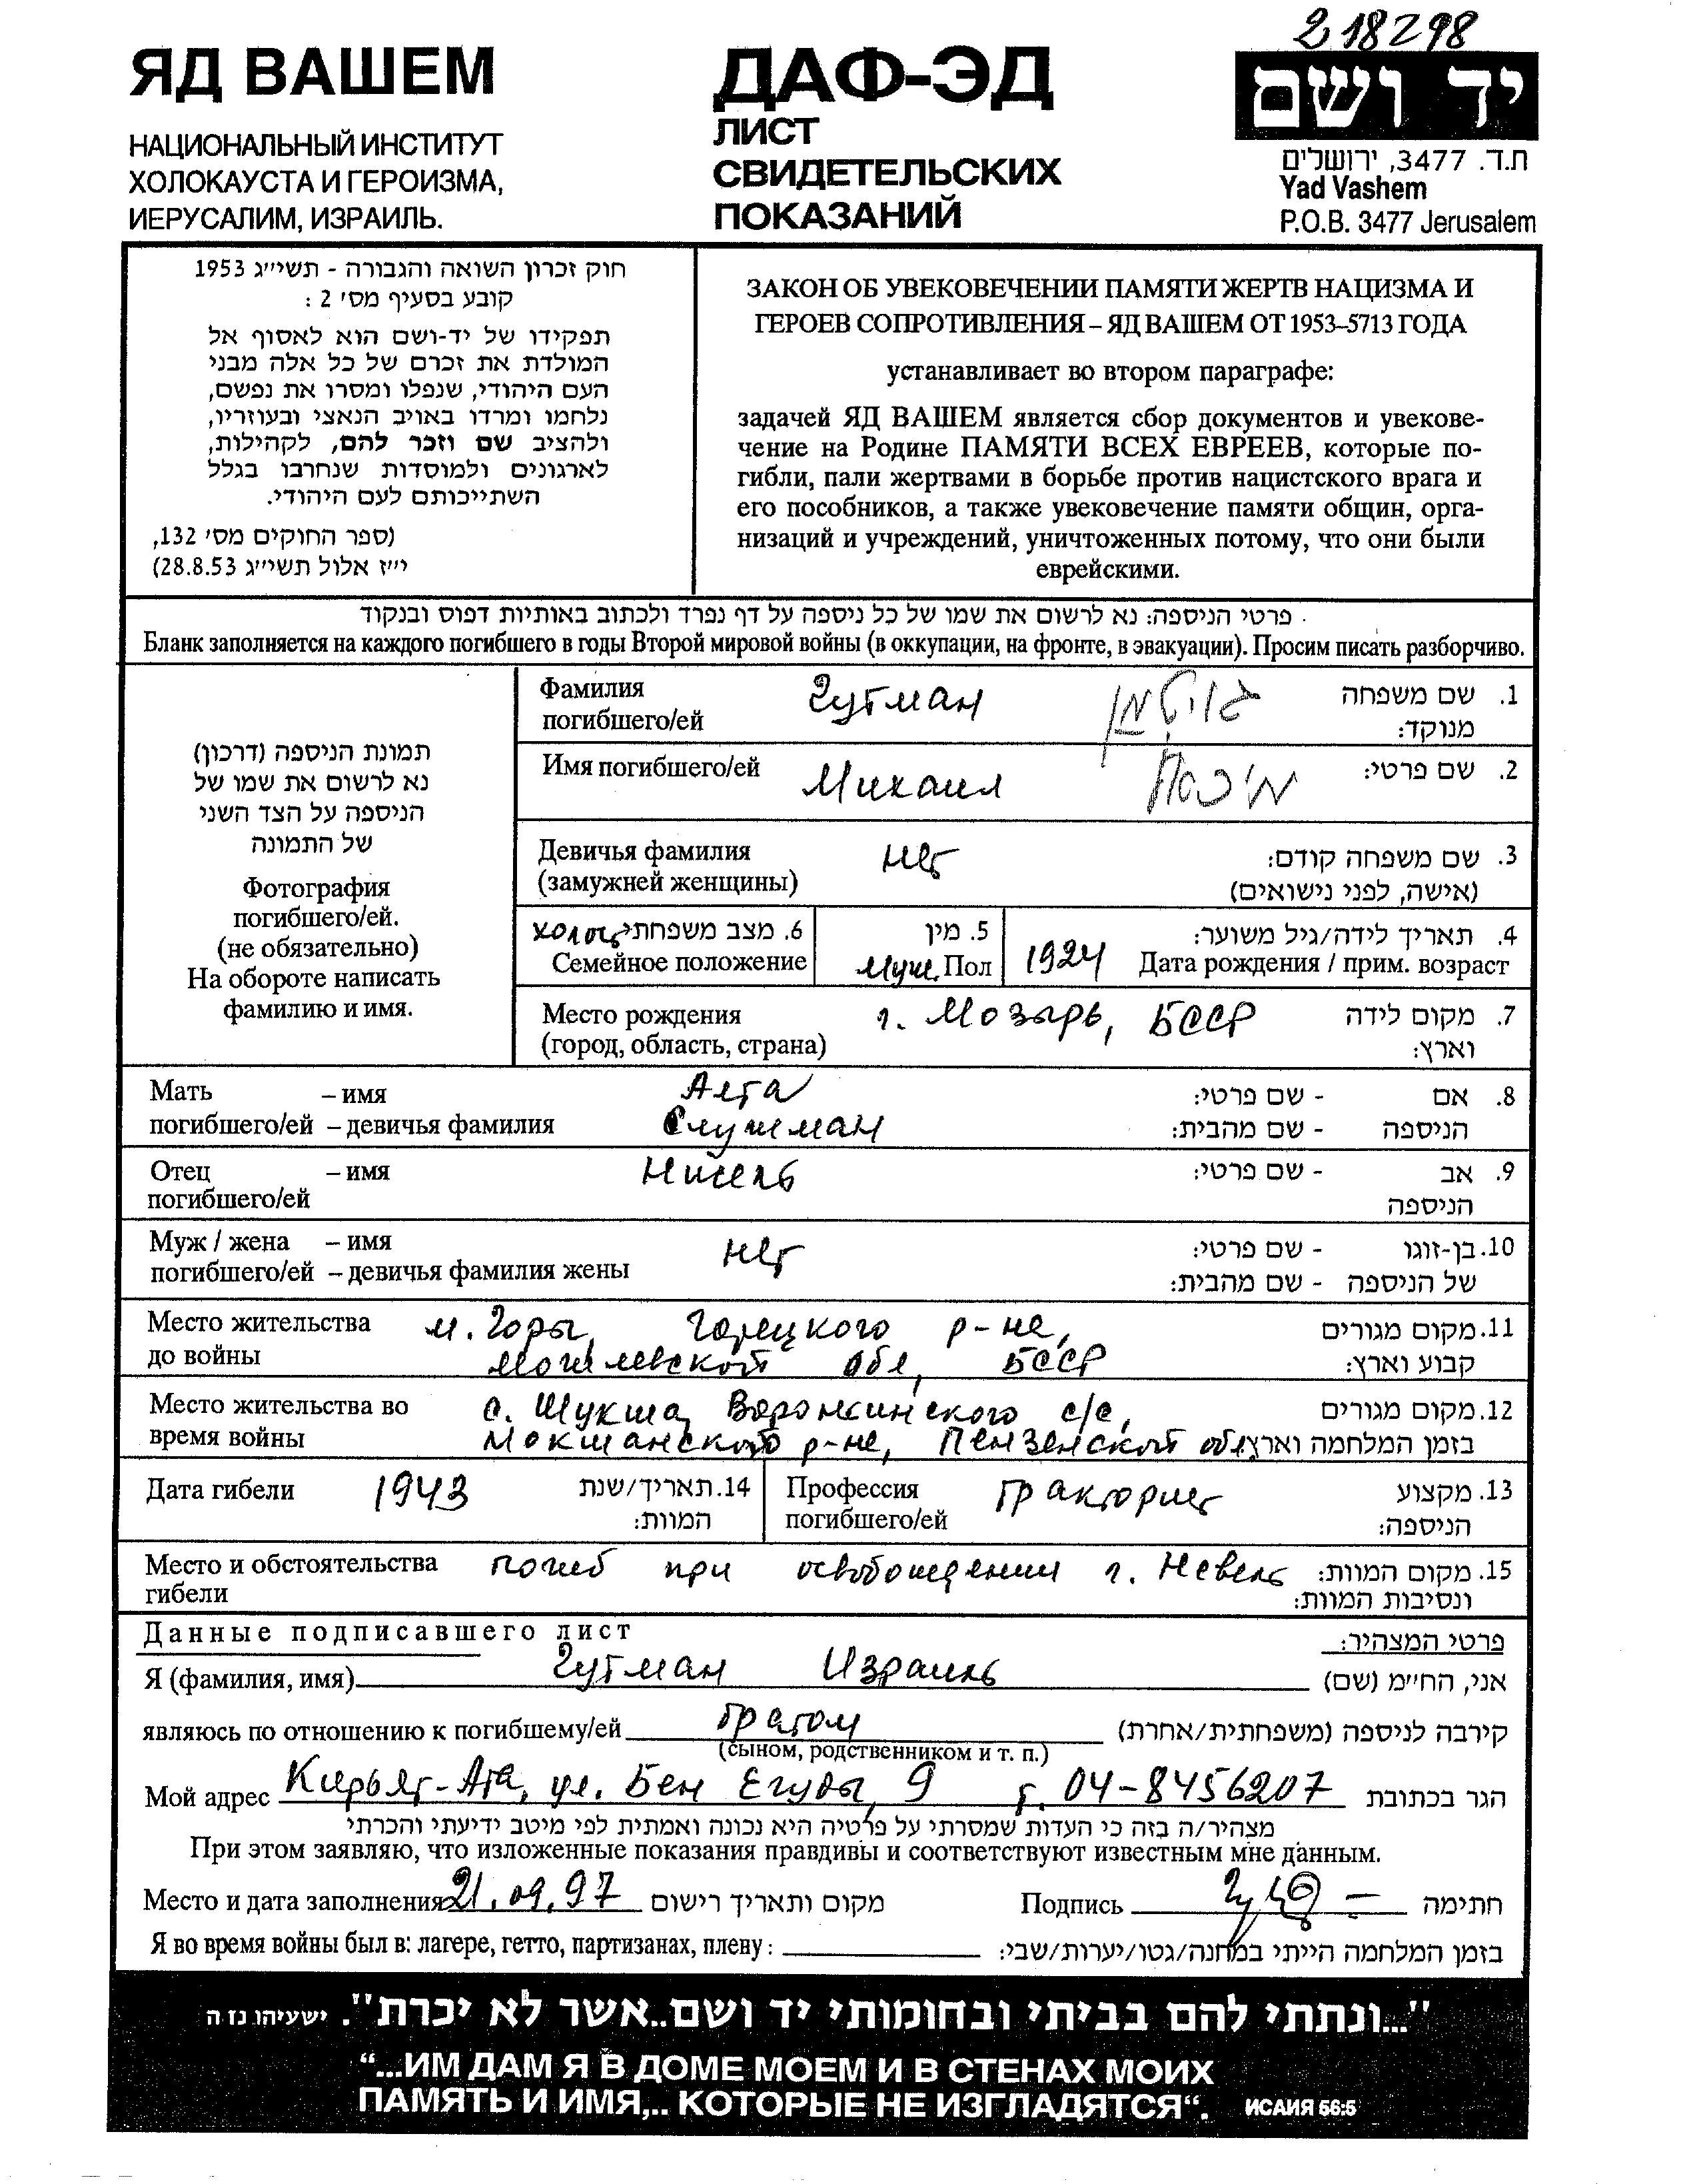 218298
ЯД ВАШЕМ
НАЦИОНАЛЬНЫЙ ИНСТИТУТ
ХОЛОКАУСТА И ГЕРОИЗМА,
ИЕРУСАЛИМ, ИЗРАИЛЬ.
ДАФ-ЭД
ЛИСТ
СВИДЕТЕЛЬСКИХ
ПОКАЗАНИЙ
יד ושם
ת.ד. 3477, ירושלים
Yad Vashem
P.O.B. 3477 Jerusalem
חוק זכרון השואה והגבורה - תשי״ג 1953
קובע בסעיף מס׳ 2 :
תפקידו של יד-ושם הוא לאסוף אל
המולדת את זכרם של כל אלה מבני
העם היהודי, שנפלו ומסרו את נפשם,
נלחמו ומרדו באויב הנאצי ובעוזריו,
ולהציב שם וזכר להם, לקהילות,
לארגונים ולמוסדות שנחרבו בגלל
השתייכותם לעם היהודי.
(ספר החוקים מס׳ 132,
י״ז אלול תשי״ג 28.8.53)
ЗАКОН ОБ УВЕКОВЕЧЕНИИ ПАМЯТИ ЖЕРТВ НАЦИЗМА И
ГЕРОЕВ СОПРОТИВЛЕНИЯ – ЯД ВАШЕМ ОТ 1953–5713 ГОДА
устанавливает во втором параграфе:
задачей ЯД ВАШЕМ является сбор документов и увекове-
чение на Родине ПАМЯТИ ВСЕХ ЕВРЕЕВ, которые по-
гибли, пали жертвами в борьбе против нацистского врага и
его пособников, а также увековечение памяти общин, орга-
низаций и учреждений, уничтоженных потому, что они были
еврейскими.
פרטי הניספה: נא לרשום את שמו של כל ניספה על דף נפרד ולכתוב באותיות דפוס ובנקוד
Бланк заполняется на каждого погибшего в годы Второй мировой войны (в оккупации, на фронте, в эвакуации). Просим писать разборчиво.
תמונת הניספה (דרכון)
נא לרשום את שמו של
הניספה על הצד השני
של התמונה
Фотография
погибшего/ей.
(не обязательно)
На обороте написать
фамилию и имя.
Фамилия Гутман גוטמן 1. שם משפחה
погибшего/ей מנוקד:
Имя погибшего/ей Михаил 2. שם פרטי:
Девичья фамилия нет 3. שם משפחה קודם:
(замужней женщины) (אישה, לפני נישואים)
холост 6. מצב משפחתי 5. מין 4. תאריך לידה/גיל משוער:
Семейное положение муж. Пол 1924 Дата рождения / прим. возраст
Место рождения г. Мозырь, БССР 7. מקום לידה
(город, область, страна) וארץ:
Мать – имя Алта 8. אם - שם פרטי:
погибшего/ей – девичья фамилия Слушман הניספה - שם מהבית:
Отец – имя Нисель 9. אב - שם פרטי:
погибшего/ей הניספה
Муж / жена – имя нет 10. בן-זוגו - שם פרטי:
погибшего/ей – девичья фамилия жены של הניספה - שם מהבית:
Место жительства м. Горы, Горецкого р-не, 11. מקום מגורים
до войны Могилевской обл, БССР קבוע וארץ:
Место жительства во с. Шукша, Воронжинского с/с, 12. מקום מגורים
время войны Мокшанского р-не, Пензенской обл בזמן המלחמה וארץ:
Дата гибели 1943 14. תאריך/שנת Профессия тракторист 13. מקצוע
המוות: погибшего/ей הניספה:
Место и обстоятельства погиб при освобождении г. Невель 15. מקום המוות:
гибели ונסיבות המוות:
Данные подписавшего лист פרטי המצהיר:
Я (фамилия, имя) Гутман Израиль אני, הח״מ (שם)
являюсь по отношению к погибшему/ей братом קירבה לניספה (משפחתית/אחרת)
(сыном, родственником и т. п.)
Мой адрес Кирьят-Ата, ул. Бен Егуды, 9 т. 04-8456207 הגר בכתובת
מצהיר/ה בזה כי העדות שמסרתי על פרטיה היא נכונה ואמתית לפי מיטב ידיעתי והכרתי
При этом заявляю, что изложенные показания правдивы и соответствуют известным мне данным.
Место и дата заполнения 21.09.97 מקום ותאריך רישום Подпись חתימה
Я во время войны был в: лагере, гетто, партизанах, плену : בזמן המלחמה הייתי במחנה/גטו/יערות/שבי:
"...ונתתי להם בביתי ובחומותי יד ושם..אשר לא יכרת". ישעיהו נו ה
“...ИМ ДАМ Я В ДОМЕ МОЕМ И В СТЕНАХ МОИХ
ПАМЯТЬ И ИМЯ,.. КОТОРЫЕ НЕ ИЗГЛАДЯТСЯ“. ИСАИЯ 56:5